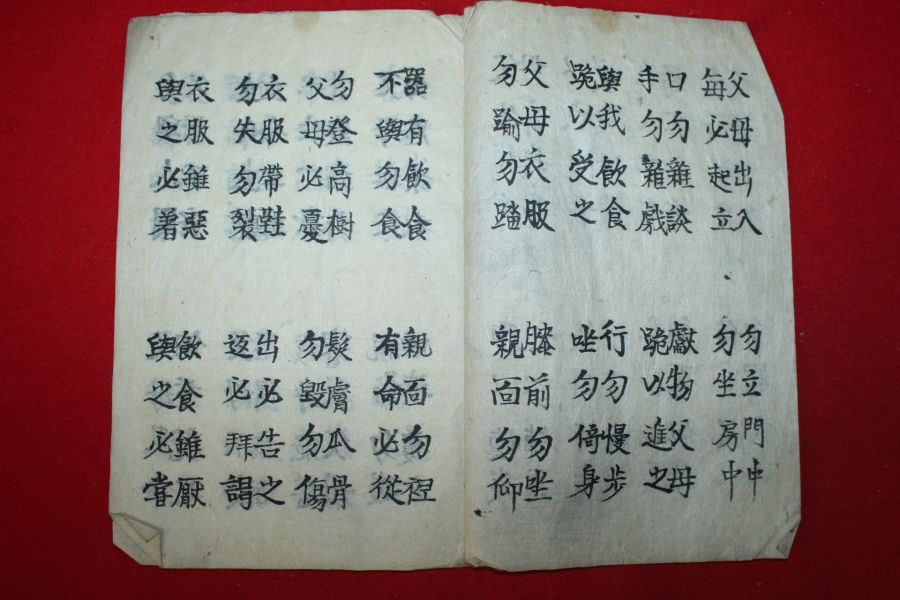 父母出入
每必起立
勿立門中
勿坐房中
口勿雜談
手勿雜戲
獻物父母
跪以進之
與我飲食
跪以受之
行勿慢步
坐勿倚身
父母衣服
勿踰勿踏
膝前勿坐
親面勿仰
器有飲食
不與勿食
親面勿
有命必從
勿登高樹
父母必憂
髮膚瓜骨
勿毀勿傷
衣服帶鞋
勿失勿裂
出必告之
返必拜謁
衣服雖惡
與之必著
飲食雖厭
與之必嘗